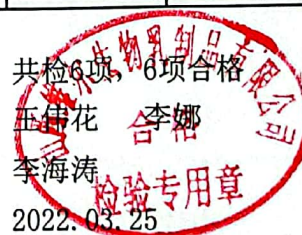 共检6项，6项合格
王伟花 李娜
李海涛
2022.03.25
生物乳制品有限公司
合格
检验专用章